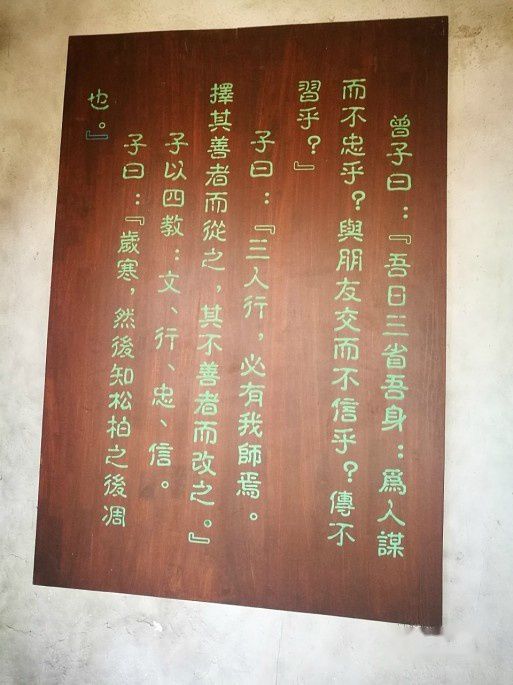 曾子曰：『吾日三省吾身：爲人謀
而不忠乎？與朋友交而不信乎？傳不
習乎？』
子曰：『三人行，必有我師焉。
擇其善者而從之，其不善者而改之。』
子以四教：文、行、忠、信。
子曰：『歲寒，然後知松柏之後凋
也。』